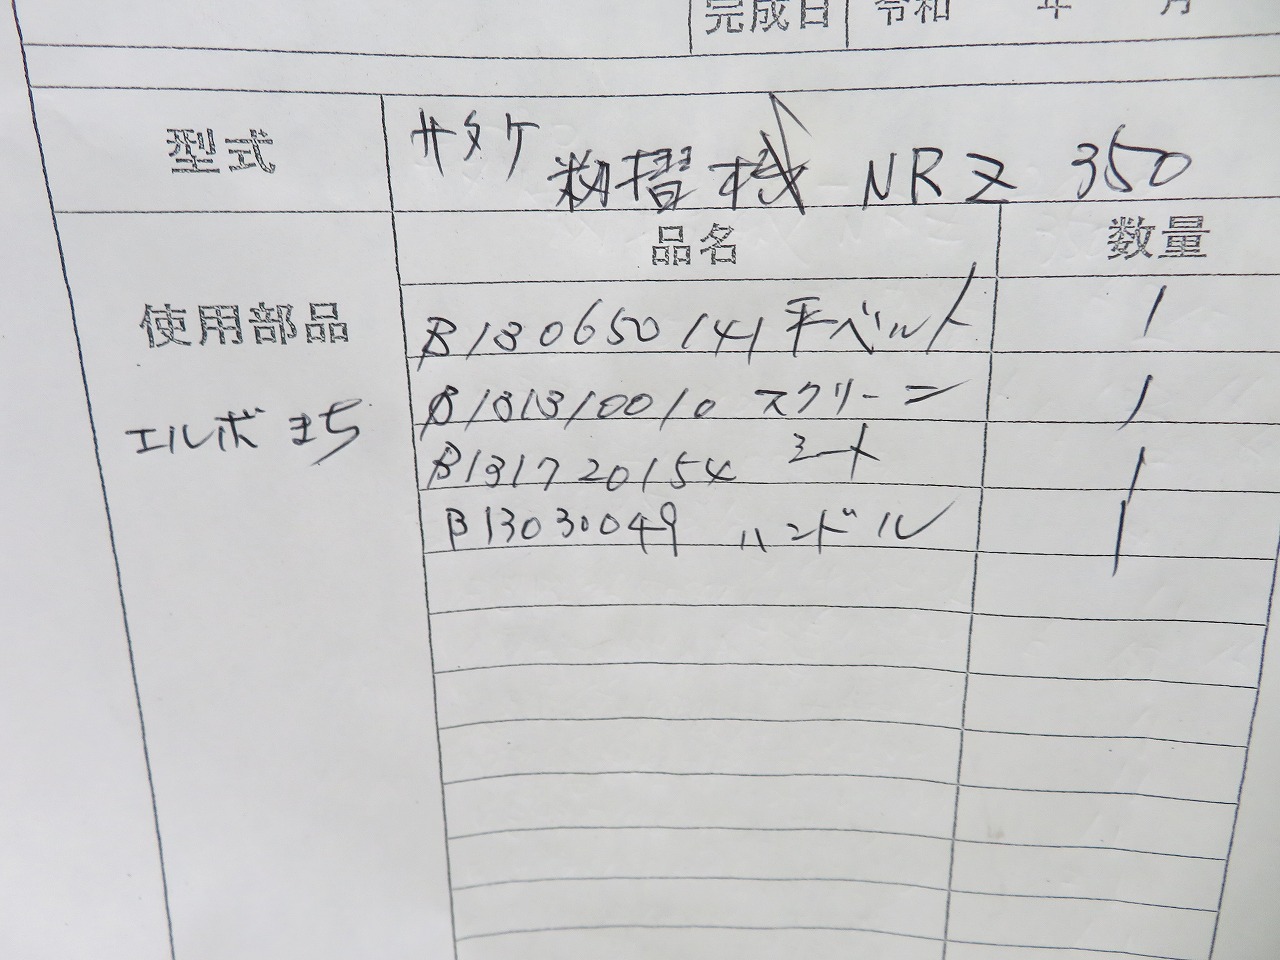 完成日 令和 年 月
型式 サタケ 籾摺機 NRZ 350
品名 数量
使用部品
B130650141 平ベルト 1
B131310010 スクリーン 1
エルボ まち
B131720154 シート 1
B13030049 ハンドル 1